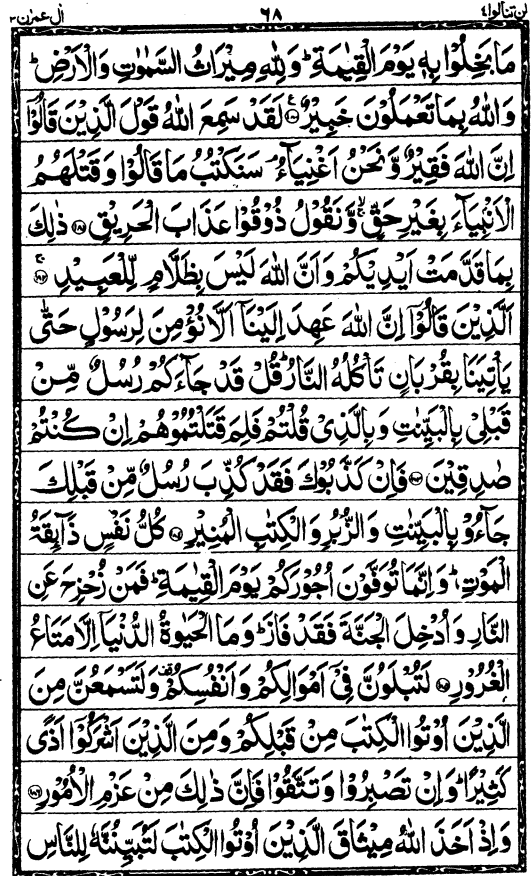 لن تنالوا ٤ ٦٨ اٰل عمرٰن ٣
مَا بَخِلُوْا بِهٖ يَوْمَ الْقِيٰمَةِ ؕ وَلِلّٰهِ مِيْرَاثُ السَّمٰوٰتِ وَالْاَرْضِ ؕ
وَاللّٰهُ بِمَا تَعْمَلُوْنَ خَبِيْرٌ ﴿۱۸۰﴾ لَقَدْ سَمِعَ اللّٰهُ قَوْلَ الَّذِيْنَ قَالُوْۤا
اِنَّ اللّٰهَ فَقِيْرٌ وَّنَحْنُ اَغْنِيَآءُ ۘ سَنَكْتُبُ مَا قَالُوْا وَقَتْلَهُمُ
الْاَنْۢبِيَآءَ بِغَيْرِ حَقٍّ ۙ وَّنَقُوْلُ ذُوْقُوْا عَذَابَ الْحَرِيْقِ ﴿۱۸۱﴾ ذٰلِكَ
بِمَا قَدَّمَتْ اَيْدِيْكُمْ وَاَنَّ اللّٰهَ لَيْسَ بِظَلَّامٍ لِّلْعَبِيْدِ ﴿۱۸۲﴾ ۚ
اَلَّذِيْنَ قَالُوْۤا اِنَّ اللّٰهَ عَهِدَ اِلَيْنَاۤ اَلَّا نُؤْمِنَ لِرَسُوْلٍ حَتّٰى
يَاْتِيَنَا بِقُرْبَانٍ تَاْكُلُهُ النَّارُ ؕ قُلْ قَدْ جَآءَكُمْ رُسُلٌ مِّنْ
قَبْلِيْ بِالْبَيِّنٰتِ وَبِالَّذِيْ قُلْتُمْ فَلِمَ قَتَلْتُمُوْهُمْ اِنْ كُنْتُمْ
صٰدِقِيْنَ ﴿۱۸۳﴾ فَاِنْ كَذَّبُوْكَ فَقَدْ كُذِّبَ رُسُلٌ مِّنْ قَبْلِكَ
جَآءُوْ بِالْبَيِّنٰتِ وَالزُّبُرِ وَالْكِتٰبِ الْمُنِيْرِ ﴿۱۸۴﴾ كُلُّ نَفْسٍ ذَآىِٕقَةُ
الْمَوْتِ ؕ وَاِنَّمَا تُوَفَّوْنَ اُجُوْرَكُمْ يَوْمَ الْقِيٰمَةِ ؕ فَمَنْ زُحْزِحَ عَنِ
النَّارِ وَاُدْخِلَ الْجَنَّةَ فَقَدْ فَازَ ؕ وَمَا الْحَيٰوةُ الدُّنْيَاۤ اِلَّا مَتَاعُ
الْغُرُوْرِ ﴿۱۸۵﴾ لَتُبْلَوُنَّ فِيْۤ اَمْوَالِكُمْ وَاَنْفُسِكُمْ ۟ وَلَتَسْمَعُنَّ مِنَ
الَّذِيْنَ اُوْتُوا الْكِتٰبَ مِنْ قَبْلِكُمْ وَمِنَ الَّذِيْنَ اَشْرَكُوْۤا اَذًى
كَثِيْرًا ؕ وَاِنْ تَصْبِرُوْا وَتَتَّقُوْا فَاِنَّ ذٰلِكَ مِنْ عَزْمِ الْاُمُوْرِ ﴿۱۸۶﴾
وَاِذْ اَخَذَ اللّٰهُ مِيْثَاقَ الَّذِيْنَ اُوْتُوا الْكِتٰبَ لَتُبَيِّنُنَّهٗ لِلنَّاسِ